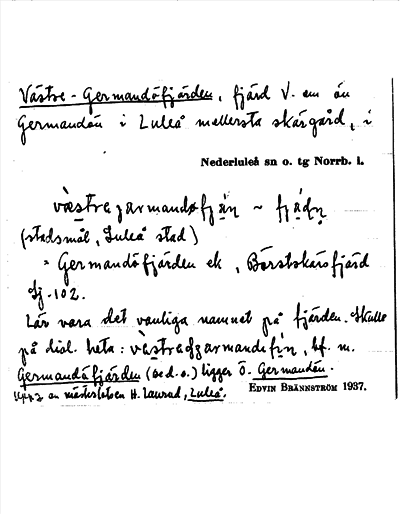 Västra-Germandöfjärden, fjärd V. om ön
Germandön i Luleå mellersta skärgård, i
Nederluleå sn o. tg Norrb. l.
västragarmandøfjän ~ fjädn
(stadsmål, Luleå stad)
= Germandöfjärden ek, Börstskärsfjärd
Sj. 102.
Lär vara det vanliga namnet på fjärden. Skulle
på dial. heta: västra, bf. m.
Germandöfjärden (se d. o.) ligger Ö. Germandön.
Uppg av mästerlotsen H. Laurad, Luleå.
EDVIN BRÄNNSTRÖM 1937.